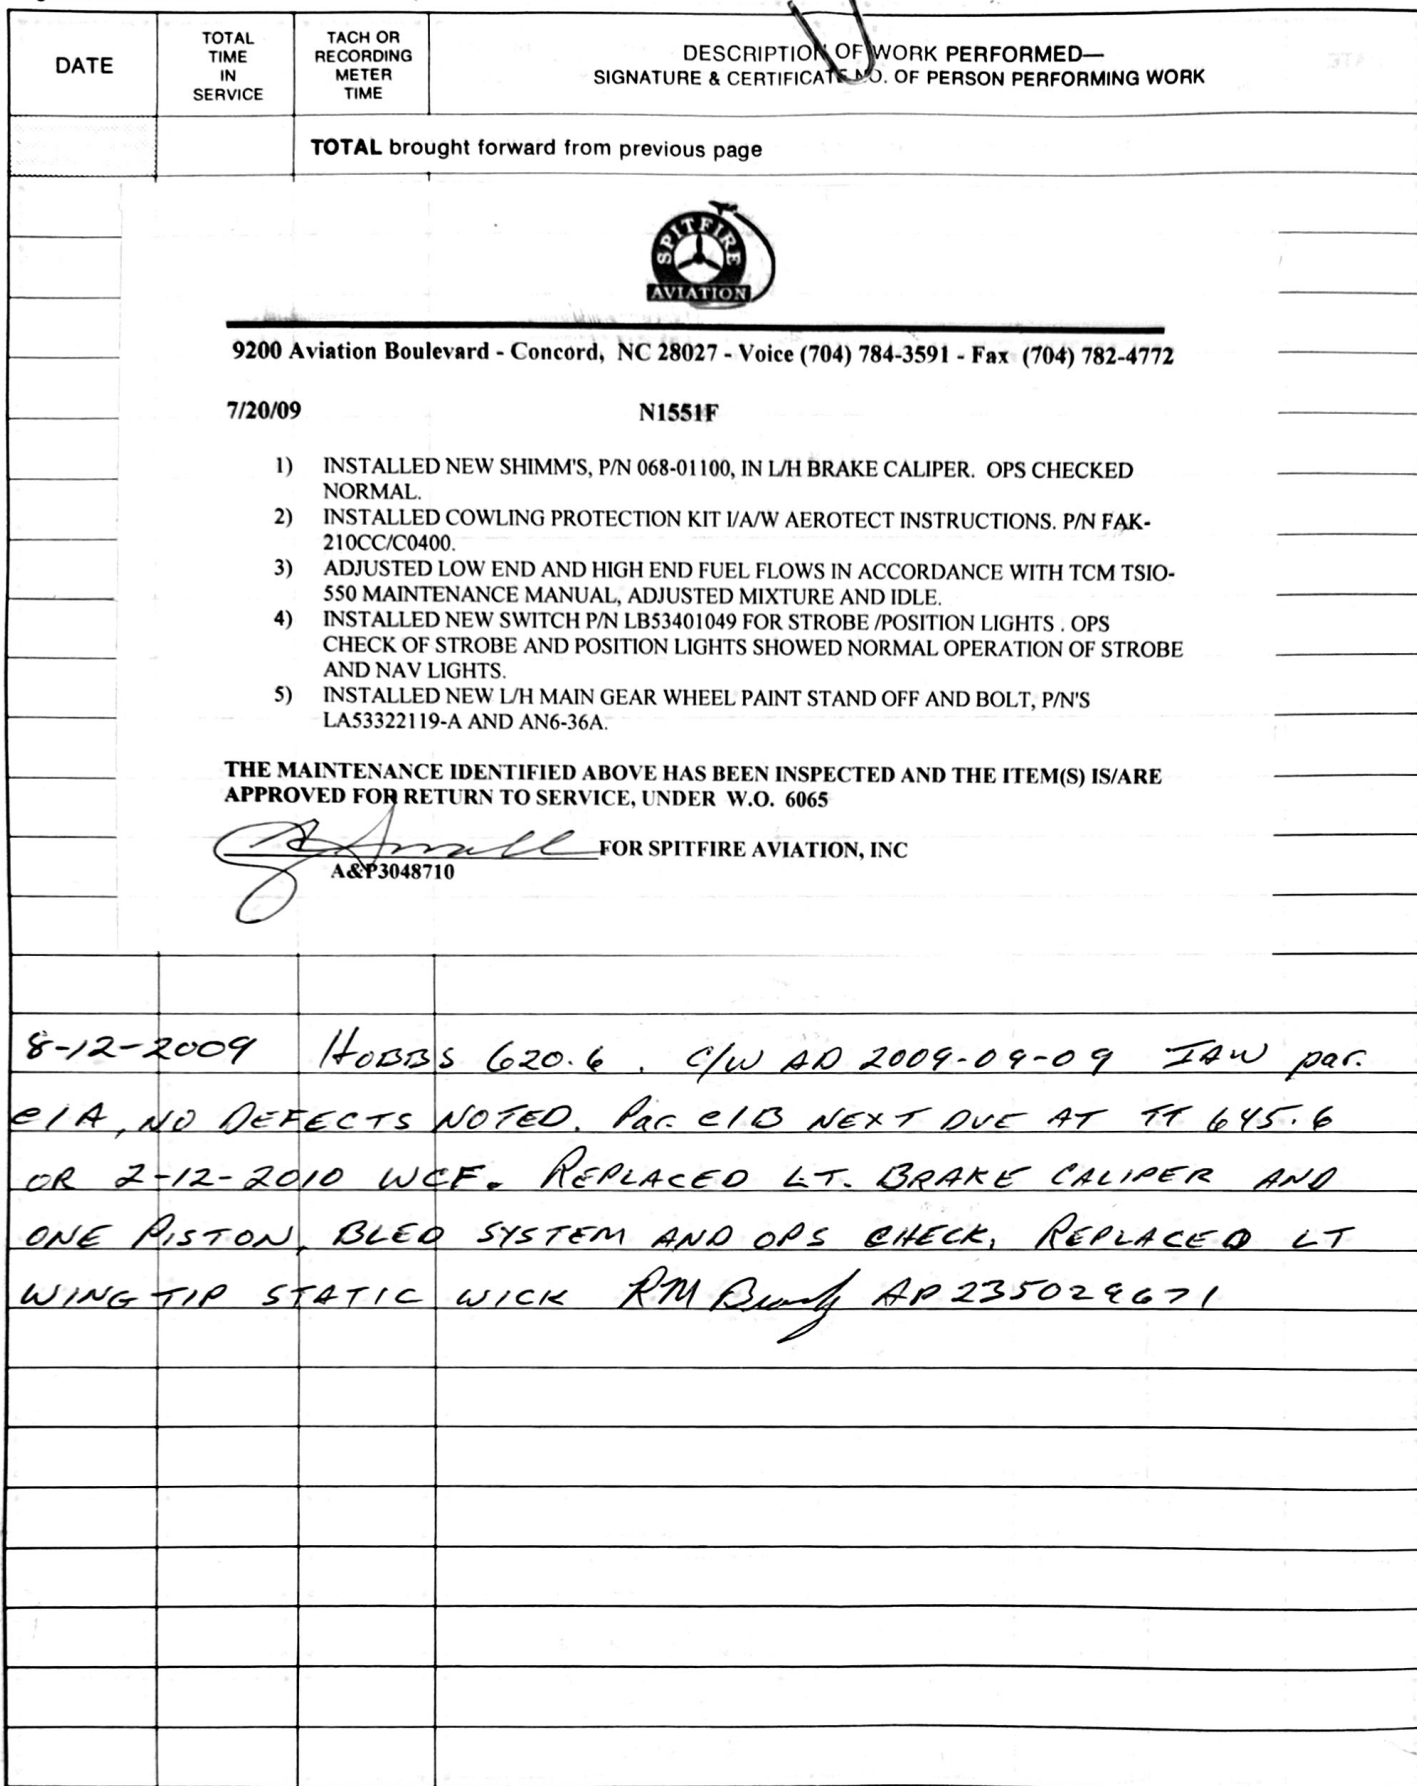 DATE
TOTAL
TIME
IN
SERVICE
TACH OR
RECORDING
METER
TIME
DESCRIPTION OF WORK PERFORMED—
SIGNATURE & CERTIFICATE NO. OF PERSON PERFORMING WORK
TOTAL brought forward from previous page
SPITFIRE
AVIATION
9200 Aviation Boulevard - Concord, NC 28027 - Voice (704) 784-3591 - Fax (704) 782-4772
7/20/09 N1551F
1) INSTALLED NEW SHIMM'S, P/N 068-01100, IN L/H BRAKE CALIPER. OPS CHECKED
NORMAL.
2) INSTALLED COWLING PROTECTION KIT I/A/W AEROTECT INSTRUCTIONS. P/N FAK-
210CC/C0400.
3) ADJUSTED LOW END AND HIGH END FUEL FLOWS IN ACCORDANCE WITH TCM TSIO-
550 MAINTENANCE MANUAL, ADJUSTED MIXTURE AND IDLE.
4) INSTALLED NEW SWITCH P/N LB53401049 FOR STROBE /POSITION LIGHTS . OPS
CHECK OF STROBE AND POSITION LIGHTS SHOWED NORMAL OPERATION OF STROBE
AND NAV LIGHTS.
5) INSTALLED NEW L/H MAIN GEAR WHEEL PAINT STAND OFF AND BOLT, P/N'S
LA53322119-A AND AN6-36A.
THE MAINTENANCE IDENTIFIED ABOVE HAS BEEN INSPECTED AND THE ITEM(S) IS/ARE
APPROVED FOR RETURN TO SERVICE, UNDER W.O. 6065
FOR SPITFIRE AVIATION, INC
A&P3048710
8-12-2009 HOBBS 620.6 . C/W AD 2009-09-09 IAW par.
e1A, NO DEFECTS NOTED. Par. e1B NEXT DUE AT TT 645.6
OR 2-12-2010 WCF. REPLACED LT. BRAKE CALIPER AND
ONE PISTON, BLED SYSTEM AND OPS CHECK, REPLACED LT
WING TIP STATIC WICK RM AP 235029671